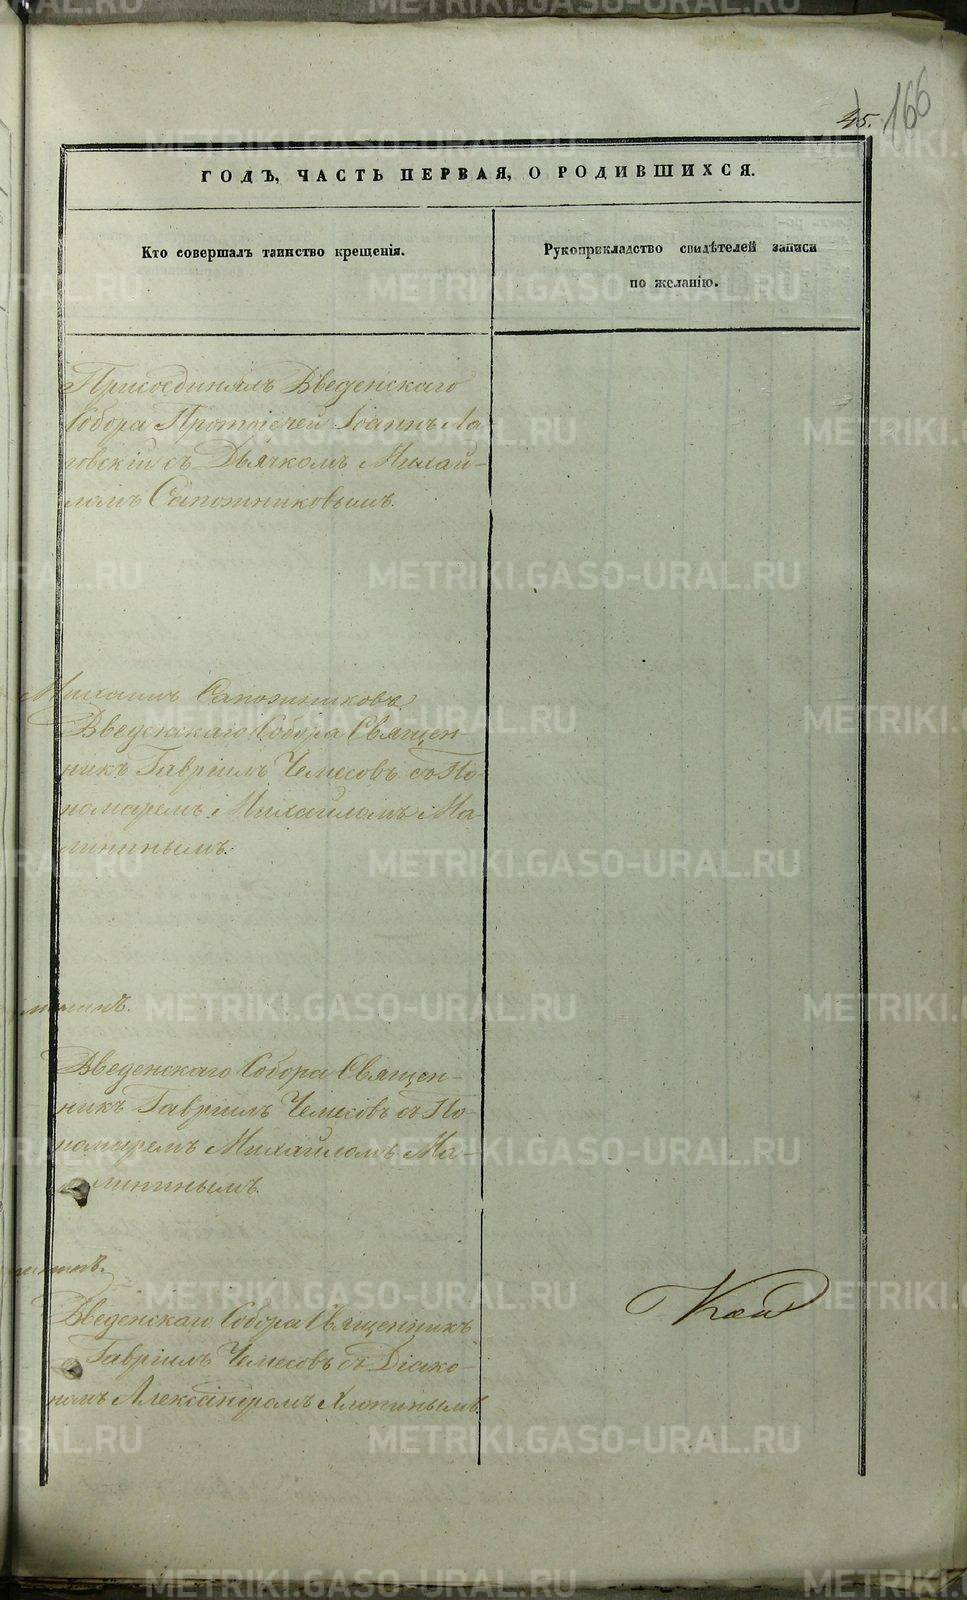 45. 166
ГОДЪ, ЧАСТЬ ПЕРВАЯ, О РОДИВШИХСЯ.
Кто совершалъ таинство крещенія.
Рукоприкладство свидѣтелей записи
по желанію.
Присоединялъ Введенскаго
Собора Протоіерей Іоаннъ Ла
говскій съ Дьячкомъ Михай-
ломъ Сапожниковымъ.
Михаилъ Сапожниковъ.
Введенскаго Собора Священ
никъ Гавріилъ Чемесовъ съ По-
номаремъ Михайломъ Ма-
лининымъ.
Введенскаго Собора Священ-
никъ Гавріилъ Чемесовъ съ По-
номаремъ Михайломъ Ма-
лининымъ.
Введенскаго Собора Священникъ
Гавріилъ Чемесовъ съ Діако-
номъ Александромъ Хлопинымъ.
METRIKI.GASO-URAL.RU